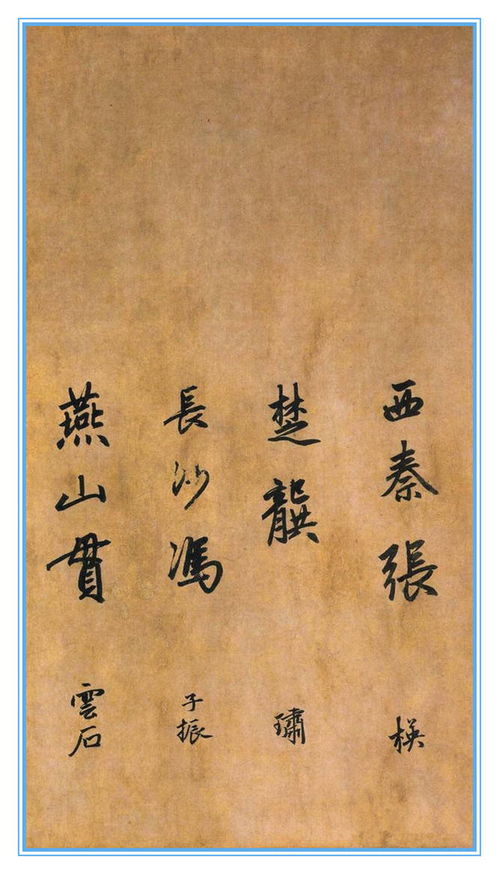 西秦張楧
楚龔璛
長沙馮子振
燕山貫雲石